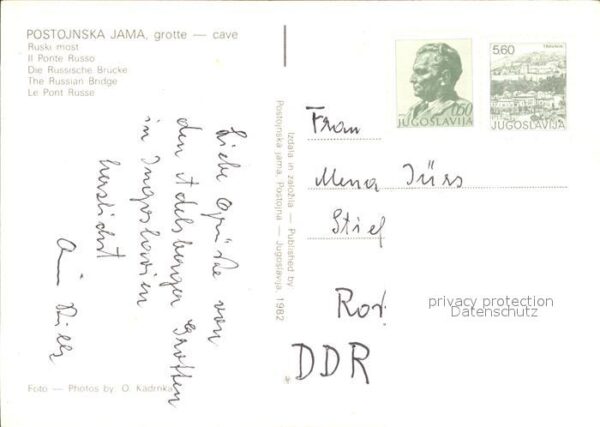 POSTOJNSKA JAMA, grotte — cave
Ruski most
Il Ponte Russo
Die Russische Brücke
The Russian Bridge
Le Pont Russe
Liebe Grüße von
den Adelsberger Grotten
in Jugoslawien
herzlichst
Foto — Photos by: O. Kadrnka
Izdala in založila — Published by
Postojnska jama, Postojna — Jugoslavija, 1982
0,60
JUGOSLAVIJA
5.60
JUGOSLAVIJA
Frau
Mena Dürs
Stief
Ros
DDR
privacy protection
Datenschutz